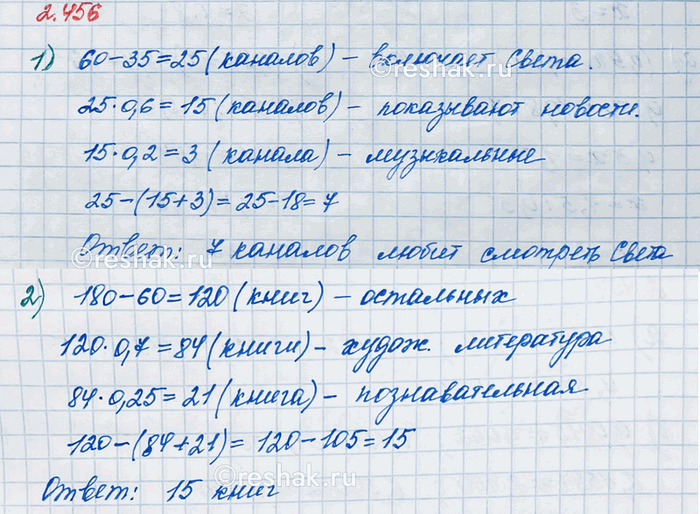 2.456
1) 60-35=25 (каналов) - включает Света.
25·0,6=15 (каналов) - показывают новости.
15·0,2=3 (канала) - музыкальные
25-(15+3)=25-18=7
Ответ: 7 каналов любит смотреть Света
2) 180-60=120 (книг) - остальных
120·0,7=84 (книги) - худож. литература
84·0,25=21 (книга) - познавательная
120-(84+21)=120-105=15
Ответ: 15 книг
©reshak.ru
©reshak.ru
©reshak.ru
©reshak.ru